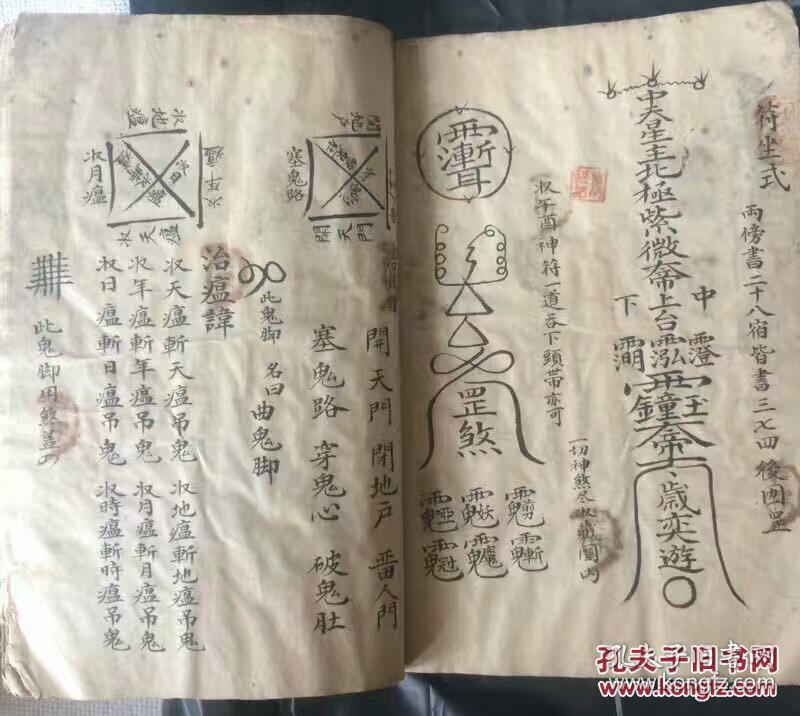 待坐式
兩傍書二十八宿皆書三七四後囙罡
中天星主北極紫微帝
上台
中
下
澄
玉
帝
歲奕遊
一切神煞尽收藏罡内
收年酉神符一道吞下頭帶亦可
罡煞
開天門 閉地户 畨人門
塞鬼路 穿鬼心 破鬼肚
閉地户
塞鬼路
開天門
此鬼脚 名曰 曲鬼脚
治瘟諱
收天瘟斬天瘟吊鬼 收地瘟斬地瘟吊鬼
收年瘟斬年瘟吊鬼 收月瘟斬月瘟吊鬼
收日瘟斬日瘟吊鬼 收時瘟斬時瘟吊鬼
收地瘟
收年瘟
收月瘟
收天瘟
此鬼脚用煞盖
孔夫子旧书网
www.kongfz.com